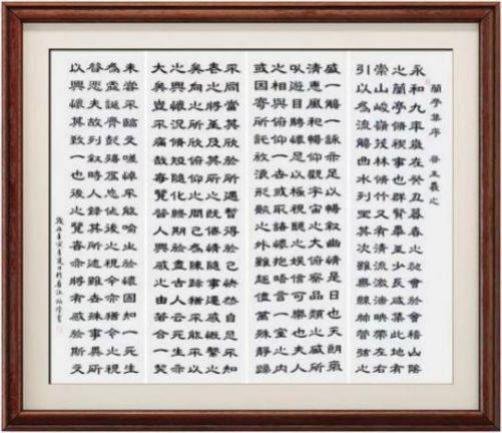 蘭亭集序 晉王羲之
永和九年歲在癸丑暮春之初會於會稽山陰
之蘭亭脩禊事也群賢畢至少長咸集此地有
崇山峻嶺茂林脩竹又有清流激湍映帶左右
引以為流觴曲水列坐其次雖無絲竹管弦之
盛一觴一詠亦足以暢敘幽情是日也天朗氣
清惠風和暢仰觀宇宙之大俯察品類之盛所
以遊目騁懷足以極視聽之娛信可樂也夫人
之相與俯仰一世或取諸懷抱晤言一室之內
或因寄所託放浪形骸之外雖趣舍萬殊靜躁
不同當其欣於所遇暫得於己快然自足不知
老之將至及其所之既倦情隨事遷感慨係之
矣向之所欣俯仰之間已為陳跡猶不能不以
之興懷況脩短隨化終期於盡古人云死生亦
大矣豈不痛哉每覽昔人興感之由若合一契
未嘗不臨文嗟悼不能喻之於懷固知一死生
為虛誕齊彭殤為妄作後之視今亦猶今之視
昔悲夫故列敘時人錄其所述雖世殊事異所
以興懷其致一也後之覽者亦將有感於斯文